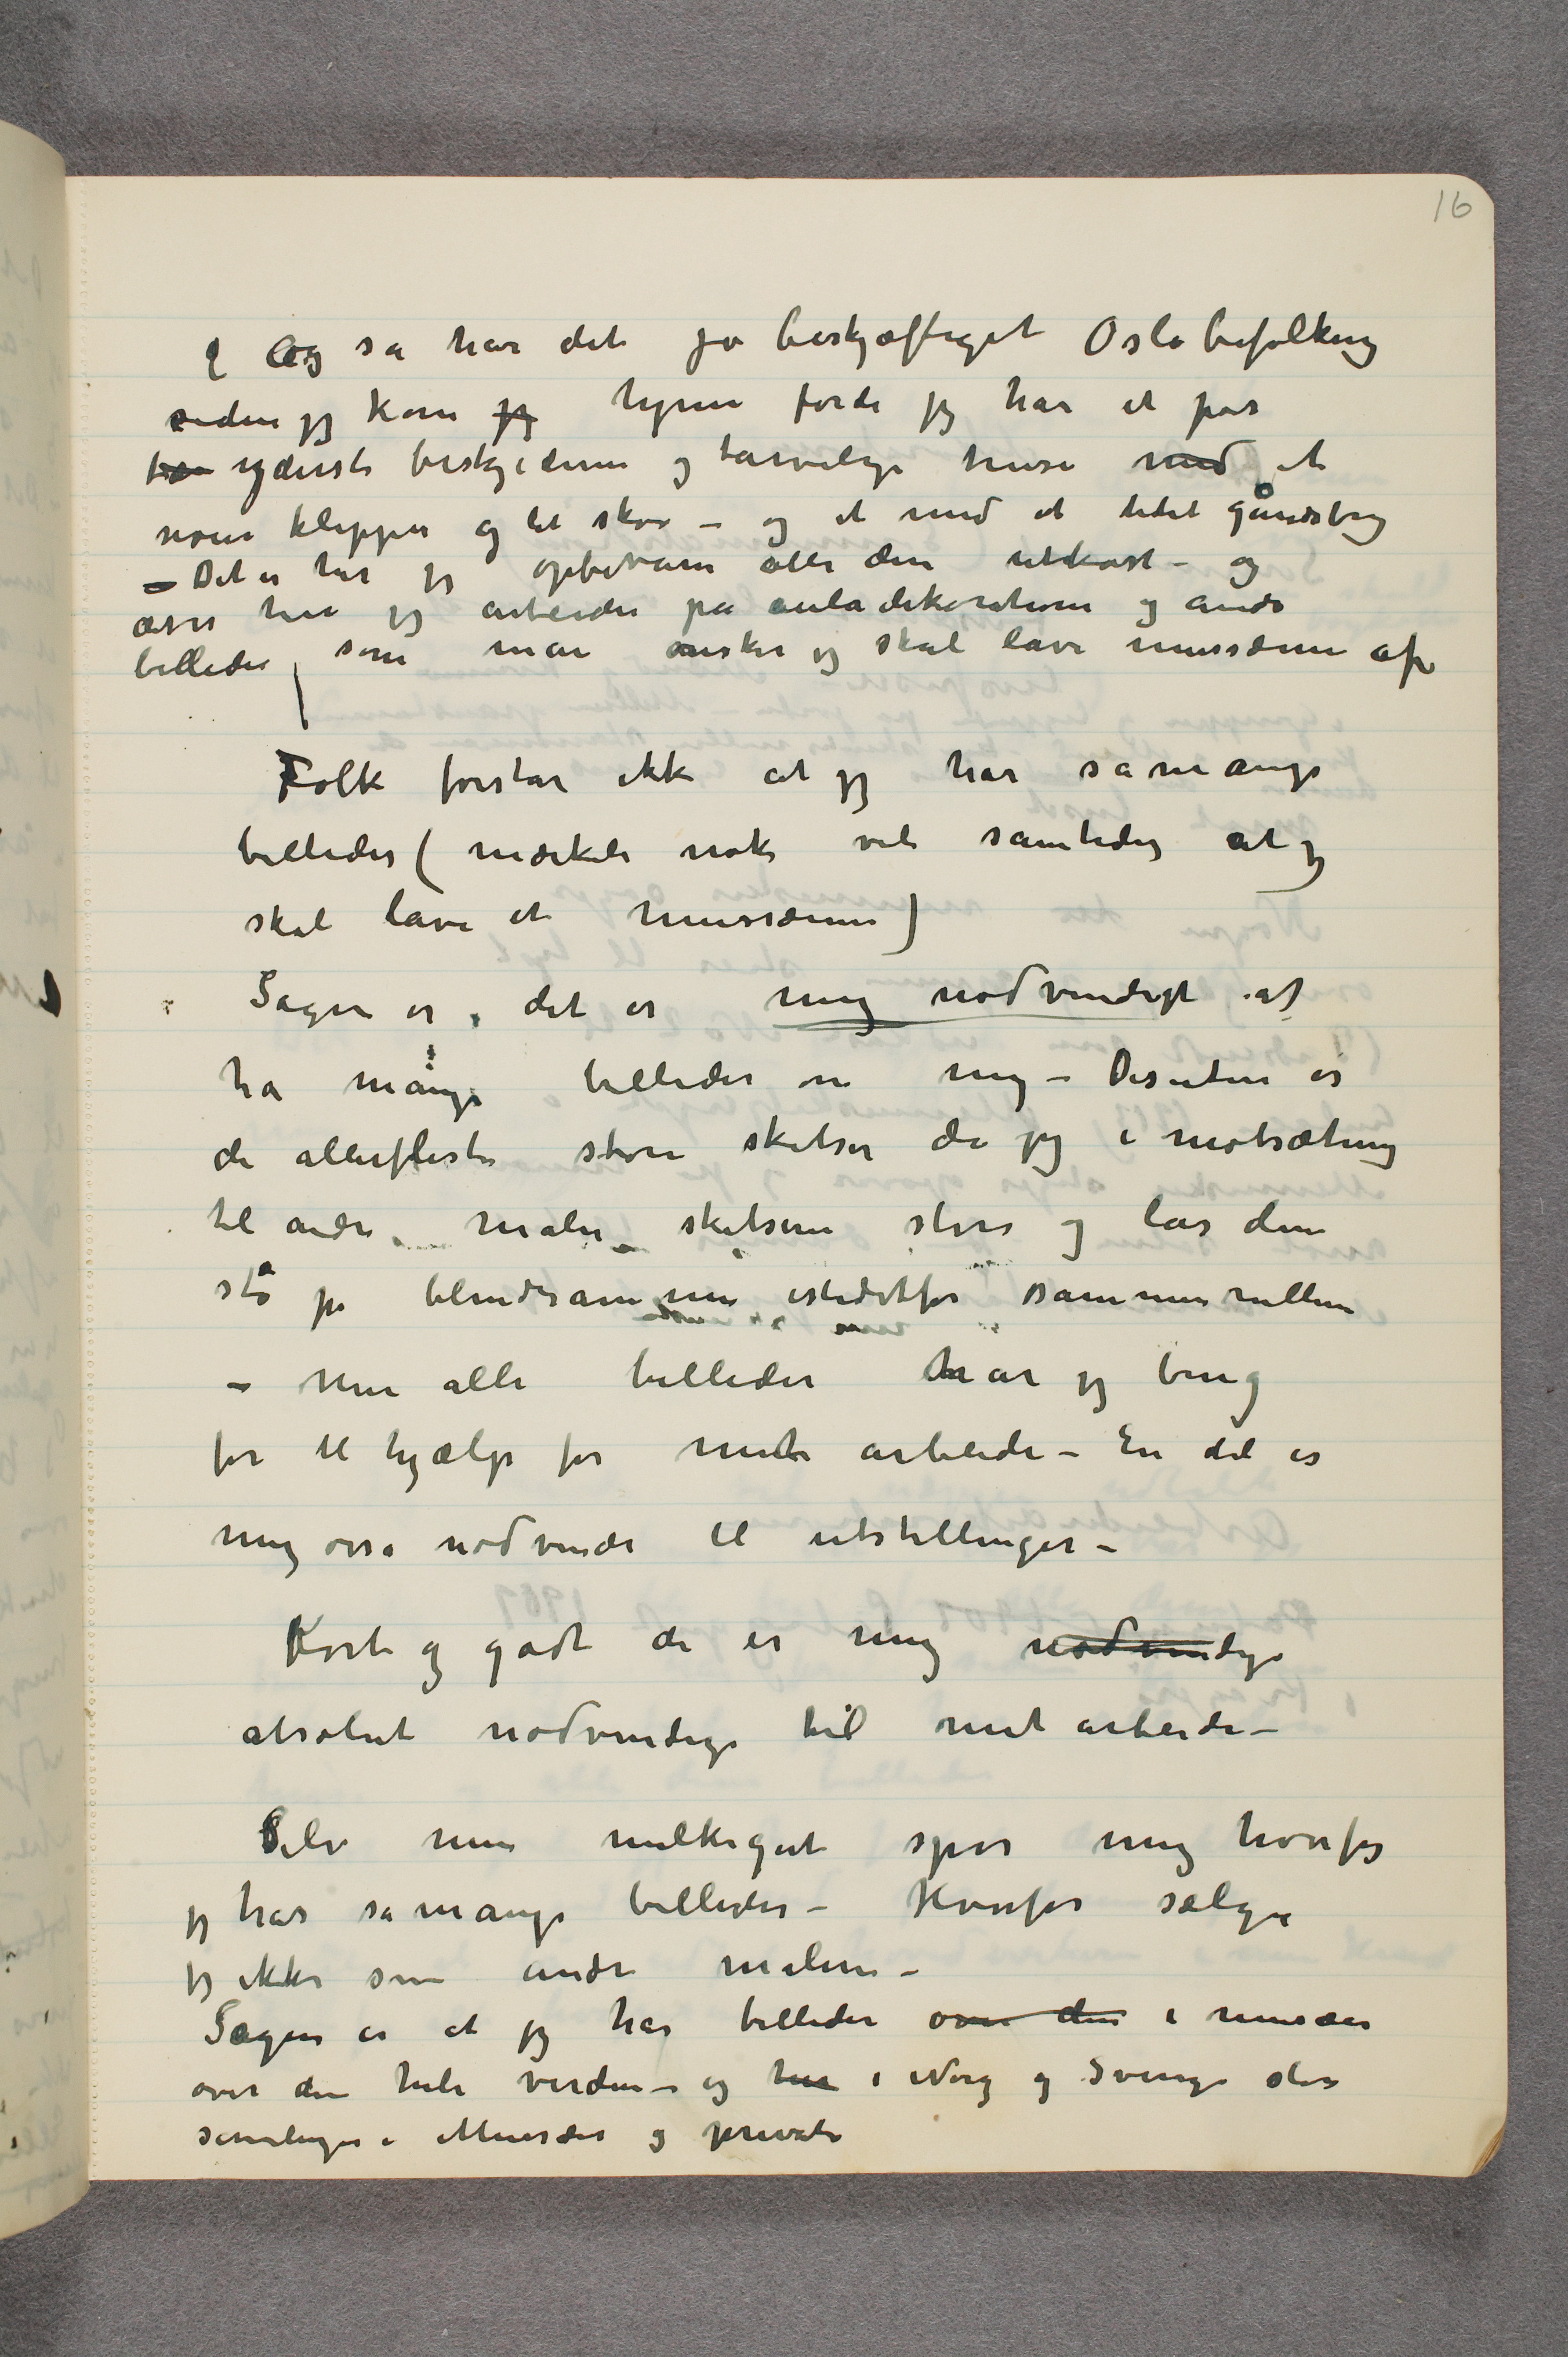 16
Og så har det jo beskjæftiget Oslo befolkning
siden jeg kom jeg hjem fordi jeg har et par
to yderst beskjedene og tarvelige huse med et
noen klipper og lit skov – og et med et litet gårdsbrug
– Det er her jeg opbevarer alle den utkast – og
her jeg arbeider på auladekorationene og andre
billeder som man ønsker jeg skal lave mussæum af
Folk forstår ikke at jeg har så mange
billeder (mærkelig nok vil samtidig at jeg
skal lave et mussæum)
Sagen er, det er mig nødvendigt at
ha mange billeder om mig – Desuten er
de allerfleste store skitser da jeg i motsætning
til andre maler skitserne store og lar dem
stå på blindrammene istedetfor sammenrullen
– Men alle billeder har jeg brug
for til hjælp for mit arbeide – En del er
mig også nødvendi til utstillinger –
Kort og godt de er mig nødvendige
absolut nødvendige til mit arbeide –
Selv min melkegut spør mig hvorfor
jeg har så mange billeder – Hvorfor sælger
jeg ikke som andre malere –
Sagen er at jeg har billeder over den i musæer
over den hele verden – og her i Norg og Sverige store
samlinger i Musæer og private